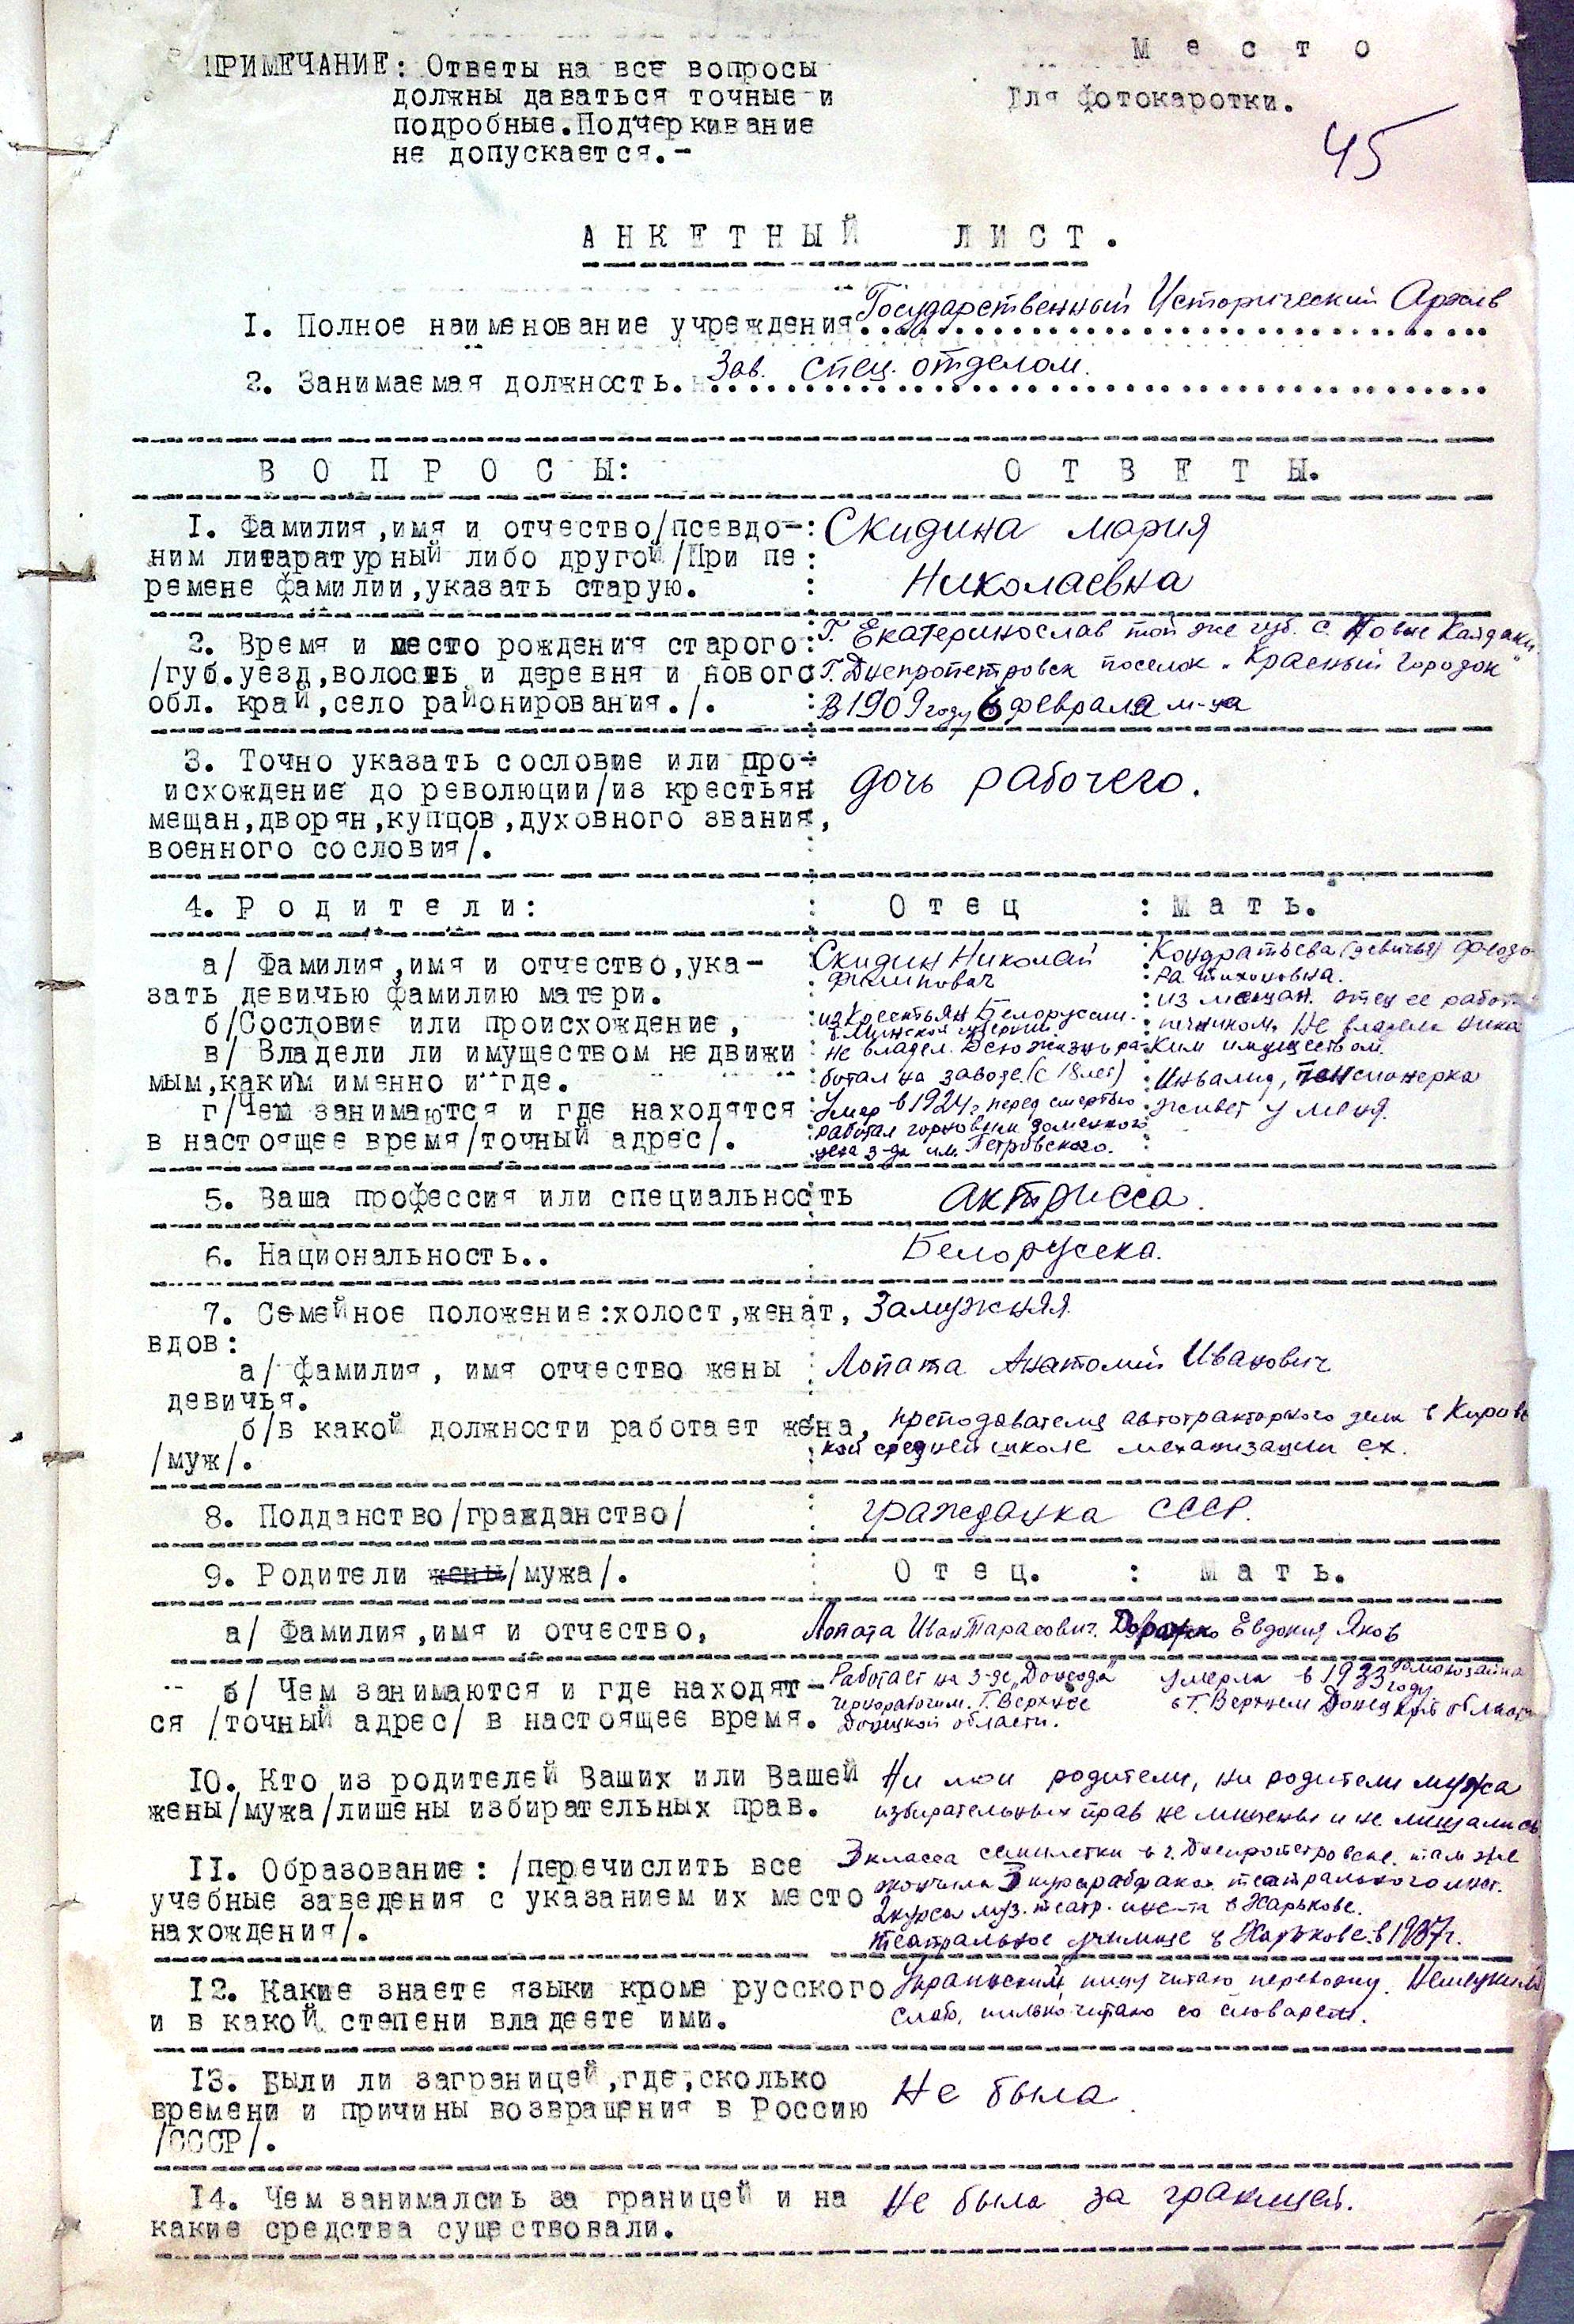 Место
ПРИМЕЧАНИЕ: Ответы на все вопросы
Для фотокаротки.
должны даваться точные и
подробные. Подчеркивание
не допускается.-
45
АНКЕТНЫЙ ЛИСТ.
1. Полное наименование учреждения Государственный Исторический Архив
2. Занимаемая должность. Зав. спец. отделом.
ВОПРОСЫ: ОТВЕТЫ.
1. Фамилия, имя и отчество/псевдо-: Скидина Мария
ним литаратурный либо другой/При пе :
ремене фамилии, указать старую. : Николаевна
2. Время и место рождения старого: Г. Екатеринослав той же губ. с. Новые Кайдаки
/губ. уезд, волость и деревня и нового Г. Днепропетровск поселок "Красный городок"
обл. край, село районирования./. : В 1909 году 6 февраля м-ца
3. Точно указать сословие или про-:
исхождение до революции/из крестьян дочь рабочего.
мещан, дворян, купцов, духовного звания,
военного сословия/.
4. Родители: : Отец : Мать.
а/ Фамилия, имя и отчество, ука- : Скидин Николай : Кондратьева (девичья) Феодо
зать девичью фамилию матери. : Филипович : ра Тихоновна.
б/Сословие или происхождение, : из Крестьян Белоруссии. : из мещан. отец ее работ
в Минской губернии : печником. Не владели ника
в/ Владели ли имуществом недвижи : не владел. Всю жизнь ра- ким имуществом.
мым, каким именно и где. : ботал на заводе (с 18 лет) : Инвалид, пенсионерка
г/Чем занимаются и где находятся : Умер в 1924 г перед смертью : живет у меня.
в настоящее время/точный адрес/. : работал горновым доменного :
цеха з-да им. Петровского.
5. Ваша профессия или специальность актрисса.
6. Национальность.. Белорусска.
7. Семейное положение: холост, женат, Замужняя
вдов:
а/ фамилия, имя отчество жены : Лопата Анатолий Иванович
девичья.
б/в какой должности работает жена, преподавателя автотракторного дела в Киров
/муж/. : кой средней школе механизации сх.
8. Подданство/гражданство/ : гражданка СССР.
9. Родители жены/мужа/. : Отец. : Мать.
а/ Фамилия, имя и отчество, Лопата Иван Тарасович. Евдокия Яков
б/ Чем занимаются и где находят- Работает на з-де "Донсода" умерла в 1933 году
ся /точный адрес/ в настоящее время. Г. Верхнее в Г. Верхнем Донецкой области
Донецкой области.
10. Кто из родителей Ваших или Вашей Ни мои родители, ни родители мужа
жены/мужа/лишены избирательных прав. избирательных прав не лишены и не лишались
11. Образование: /перечислить все 3 класса семилетки в г. Днепропетровске. там же
учебные заведения с указанием их место кончила 3 курс рабфака театрального инст.
2 курса муз. театр. инс-та в Харькове.
нахождения/. Театральное училище в Харькове. в 1937 г.
12. Какие знаете языки кроме русского Украинский пишу читаю перевожу. Немецкий
и в какой степени владеете ими. слабо, читаю со словарем.
13. Были ли заграницей, где, сколько Не была.
времени и причины возвращения в Россию
/СССР/.
14. Чем занимались за границей и на не была за границей.
какие средства существовали.